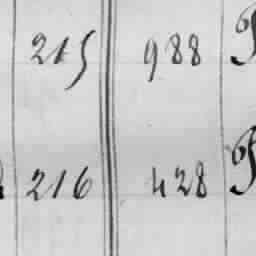 215 988
216 428